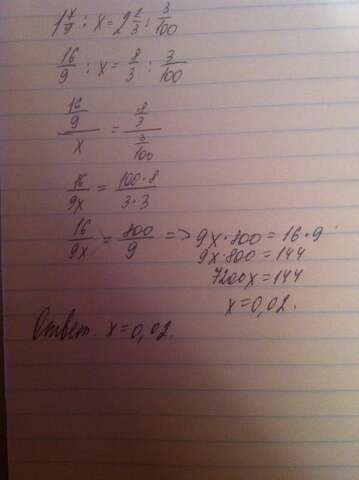 1 7/9 : x = 2 2/3 : 3/100
16/9 : x = 8/3 : 3/100
(16/9)/x = (8/3)/(3/100)
16/9x = 100·8/3·3
16/9x = 800/9 => 9x·800 = 16·9
9x·800 = 144
7200x = 144
x = 0,02.
Ответ. x = 0,02.